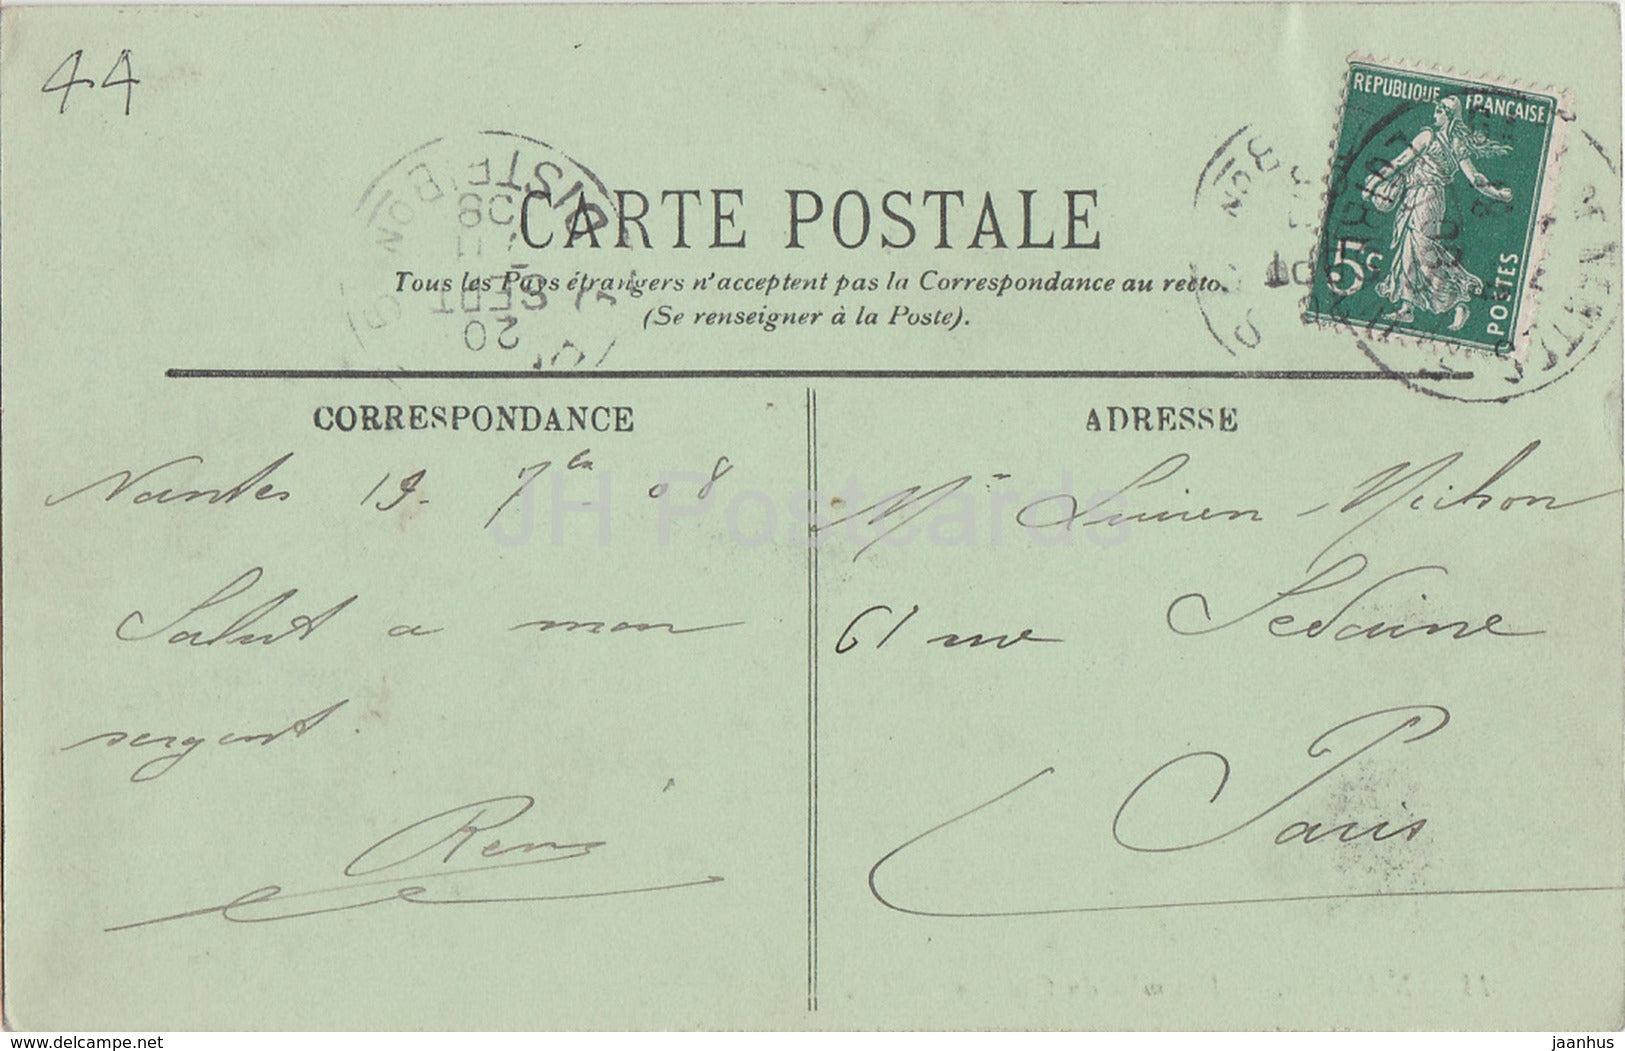 44
REPUBLIQUE FRANÇAISE
5c
POSTES
CARTE POSTALE
Tous les Pays étrangers n'acceptent pas la Correspondance au recto.
(Se renseigner à la Poste).
20
SEPT
11
08
CORRESPONDANCE
Nantes 19. 7bre 08
Salut a mon
sergent.
René
ADRESSE
Mr Lucien Michon
61 rue Sedaine
Paris
JH Postcards
delcampe.net
jaanhus